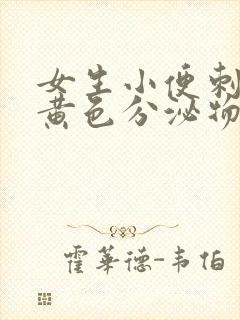 女生小便刺
黄色分泌物
霍華德-韦伯